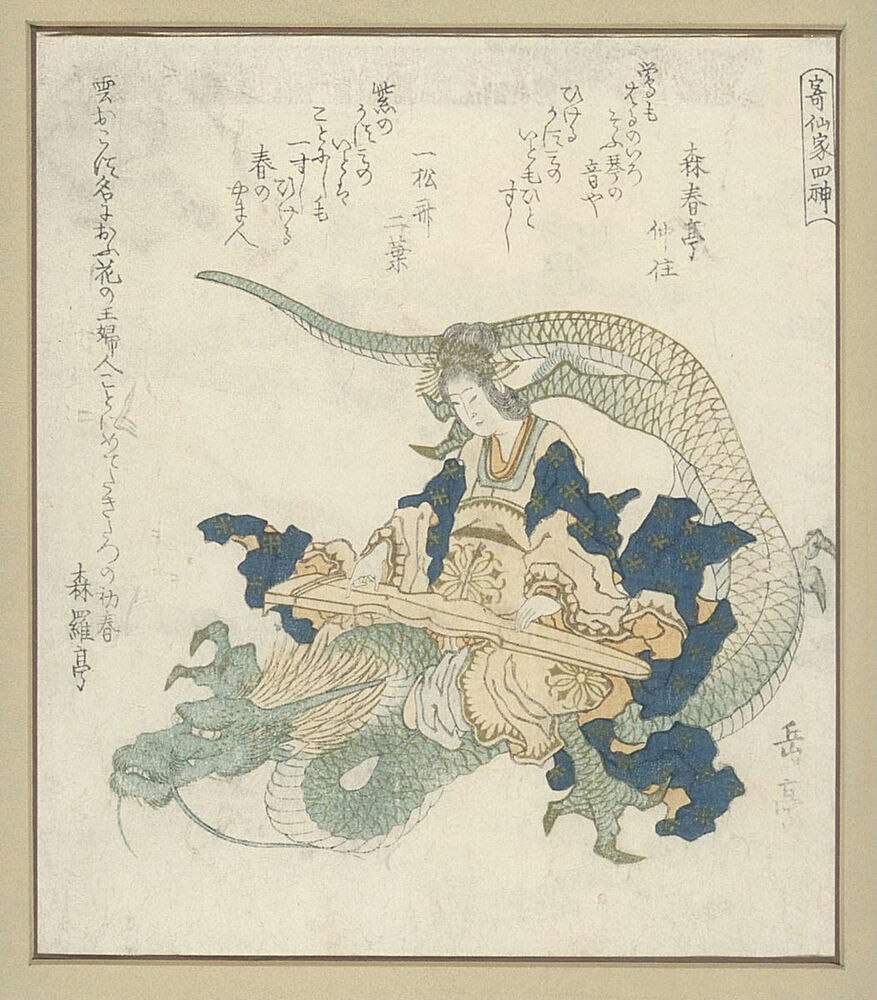 寄仙家四神
森春亭
仲住
鶯も
はるのいろ
そふ琴の
音や
ひける
かすみの
いともひと
すし
一松斎
二葉
紫の
かすみの
いとは
ことにしも
一すしひける
春の
山ま人
雲おこす名におふ花の王婦人ことにめてたきけふの初春
森羅亭
岳亭